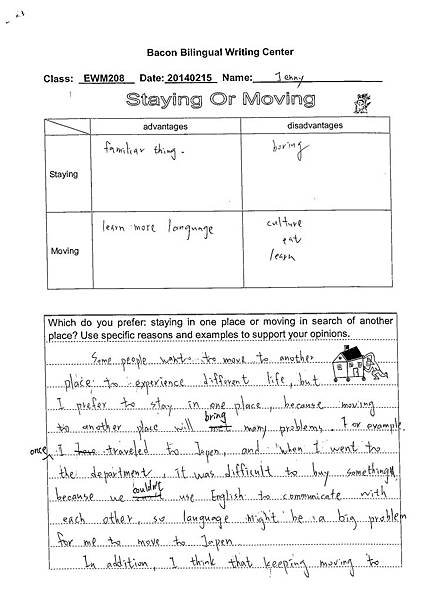 Bacon Bilingual Writing Center
Class: EWM208 Date: 20140215 Name: Jenny
Staying Or Moving
advantages disadvantages
Staying familiar thing. boring
Moving learn more language culture
eat
learn
Which do you prefer: staying in one place or moving in search of another
place? Use specific reasons and examples to support your opinions.
Some people want to move to another
place to experience different life, but
I prefer to stay in one place, because moving
to another place will bring many problems. For example,
once I traveled to Japen, and when I went to
the department, it was difficult to buy something,
because we couldn't use English to communicate with
each other, so language might be a big problem
for me to move to Japen.
In addition, I think that keeping moving to